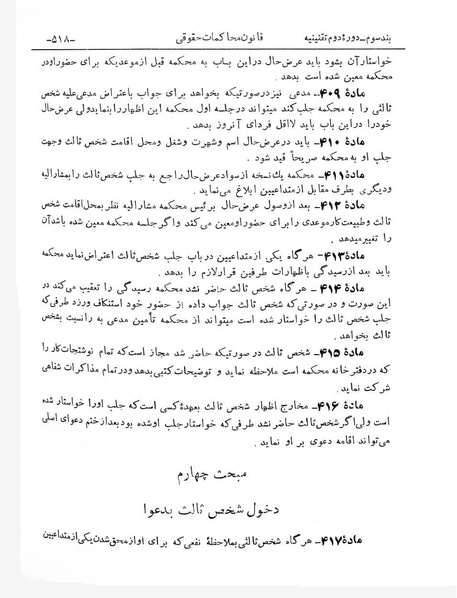 بند سوم ـ دورهٔ دوم تقنینیه    قانون محاکمات حقوقی    ـ۵۱۸ـ
خواستار آن بشود باید عرض‌حال در این باب به محکمه قبل از موعدیکه برای حضور او در
محکمه معین شده است بدهد .
مادهٔ ۴۰۹ـ مدعی نیز در صورتیکه بخواهد برای جواب باعتراض مدعی‌علیه شخص
ثالثی را به محکمه جلب کند میتواند در جلسه اول محکمه این اظهار را بنماید ولی عرض‌حال
خود را در این باب باید لااقل فردای آنروز بدهد .
مادهٔ ۴۱۰ـ باید در عرض‌حال اسم و شهرت و شغل و محل اقامت شخص ثالث و جهت
جلب او به محکمه صریحاً قید شود .
مادهٔ ۴۱۱ـ محکمه یک نسخه از سواد عرض‌حال راجع به جلب شخص ثالث را بمشارالیه
و دیگری بطرف مقابل از متداعیین ابلاغ می‌نماید .
مادهٔ ۴۱۲ـ بعد از وصول عرض‌حال رئیس محکمه مشارالیه نظر بمحل اقامت شخص
ثالث و طبیعت کار موعدی را برای حضور او معین می‌کند و اگر جلسه محکمه معین شده باشد آن
را تغییر میدهد .
مادهٔ ۴۱۳ـ هر گاه یکی از متداعیین در باب جلب شخص ثالث اعتراض نماید محکمه
باید بعد از رسیدگی باظهارات طرفین قرار لازم را بدهد .
مادهٔ ۴۱۴ـ هر گاه شخص ثالث حاضر نشد محکمه رسیدگی را تعقیب می‌کند در
این صورت و در صورتی که شخص ثالث جواب داده از حضور خود استنکاف ورزد طرفی که
جلب شخص ثالث را خواستار شده است میتواند از محکمه تأمین مدعی به را نسبت بشخص
ثالث بخواهد .
مادهٔ ۴۱۵ـ شخص ثالث در صورتیکه حاضر شد مجاز است که تمام نوشتجات کار را
که در دفتر خانه محکمه است ملاحظه نماید و توضیحات کتبی بدهد و در تمام مذاکرات شفاهی
شرکت نماید .
مادهٔ ۴۱۶ـ مخارج اظهار شخص ثالث بعهدهٔ کسی است که جلب او را خواستار شده
است ولی اگر شخص ثالث حاضر نشد طرفی که خواستار جلب او شده بود بعد از ختم دعوای اصلی
می‌تواند اقامه دعوی بر او نماید .
مبحث چهارم
دخول شخص ثالث بدعوا
مادهٔ ۴۱۷ـ هر گاه شخص ثالثی بملاحظهٔ نفعی که برای او از محق شدن یکی از متداعیین